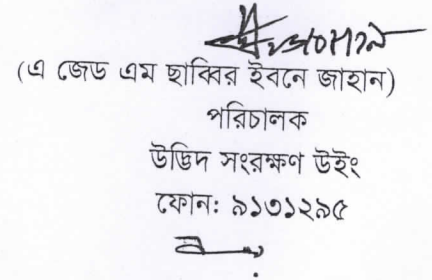 (এ জেড এম ছাব্বির ইবনে জাহান)
পরিচালক
উদ্ভিদ সংরক্ষণ উইং
ফোন: ৯১৩১২৯৫